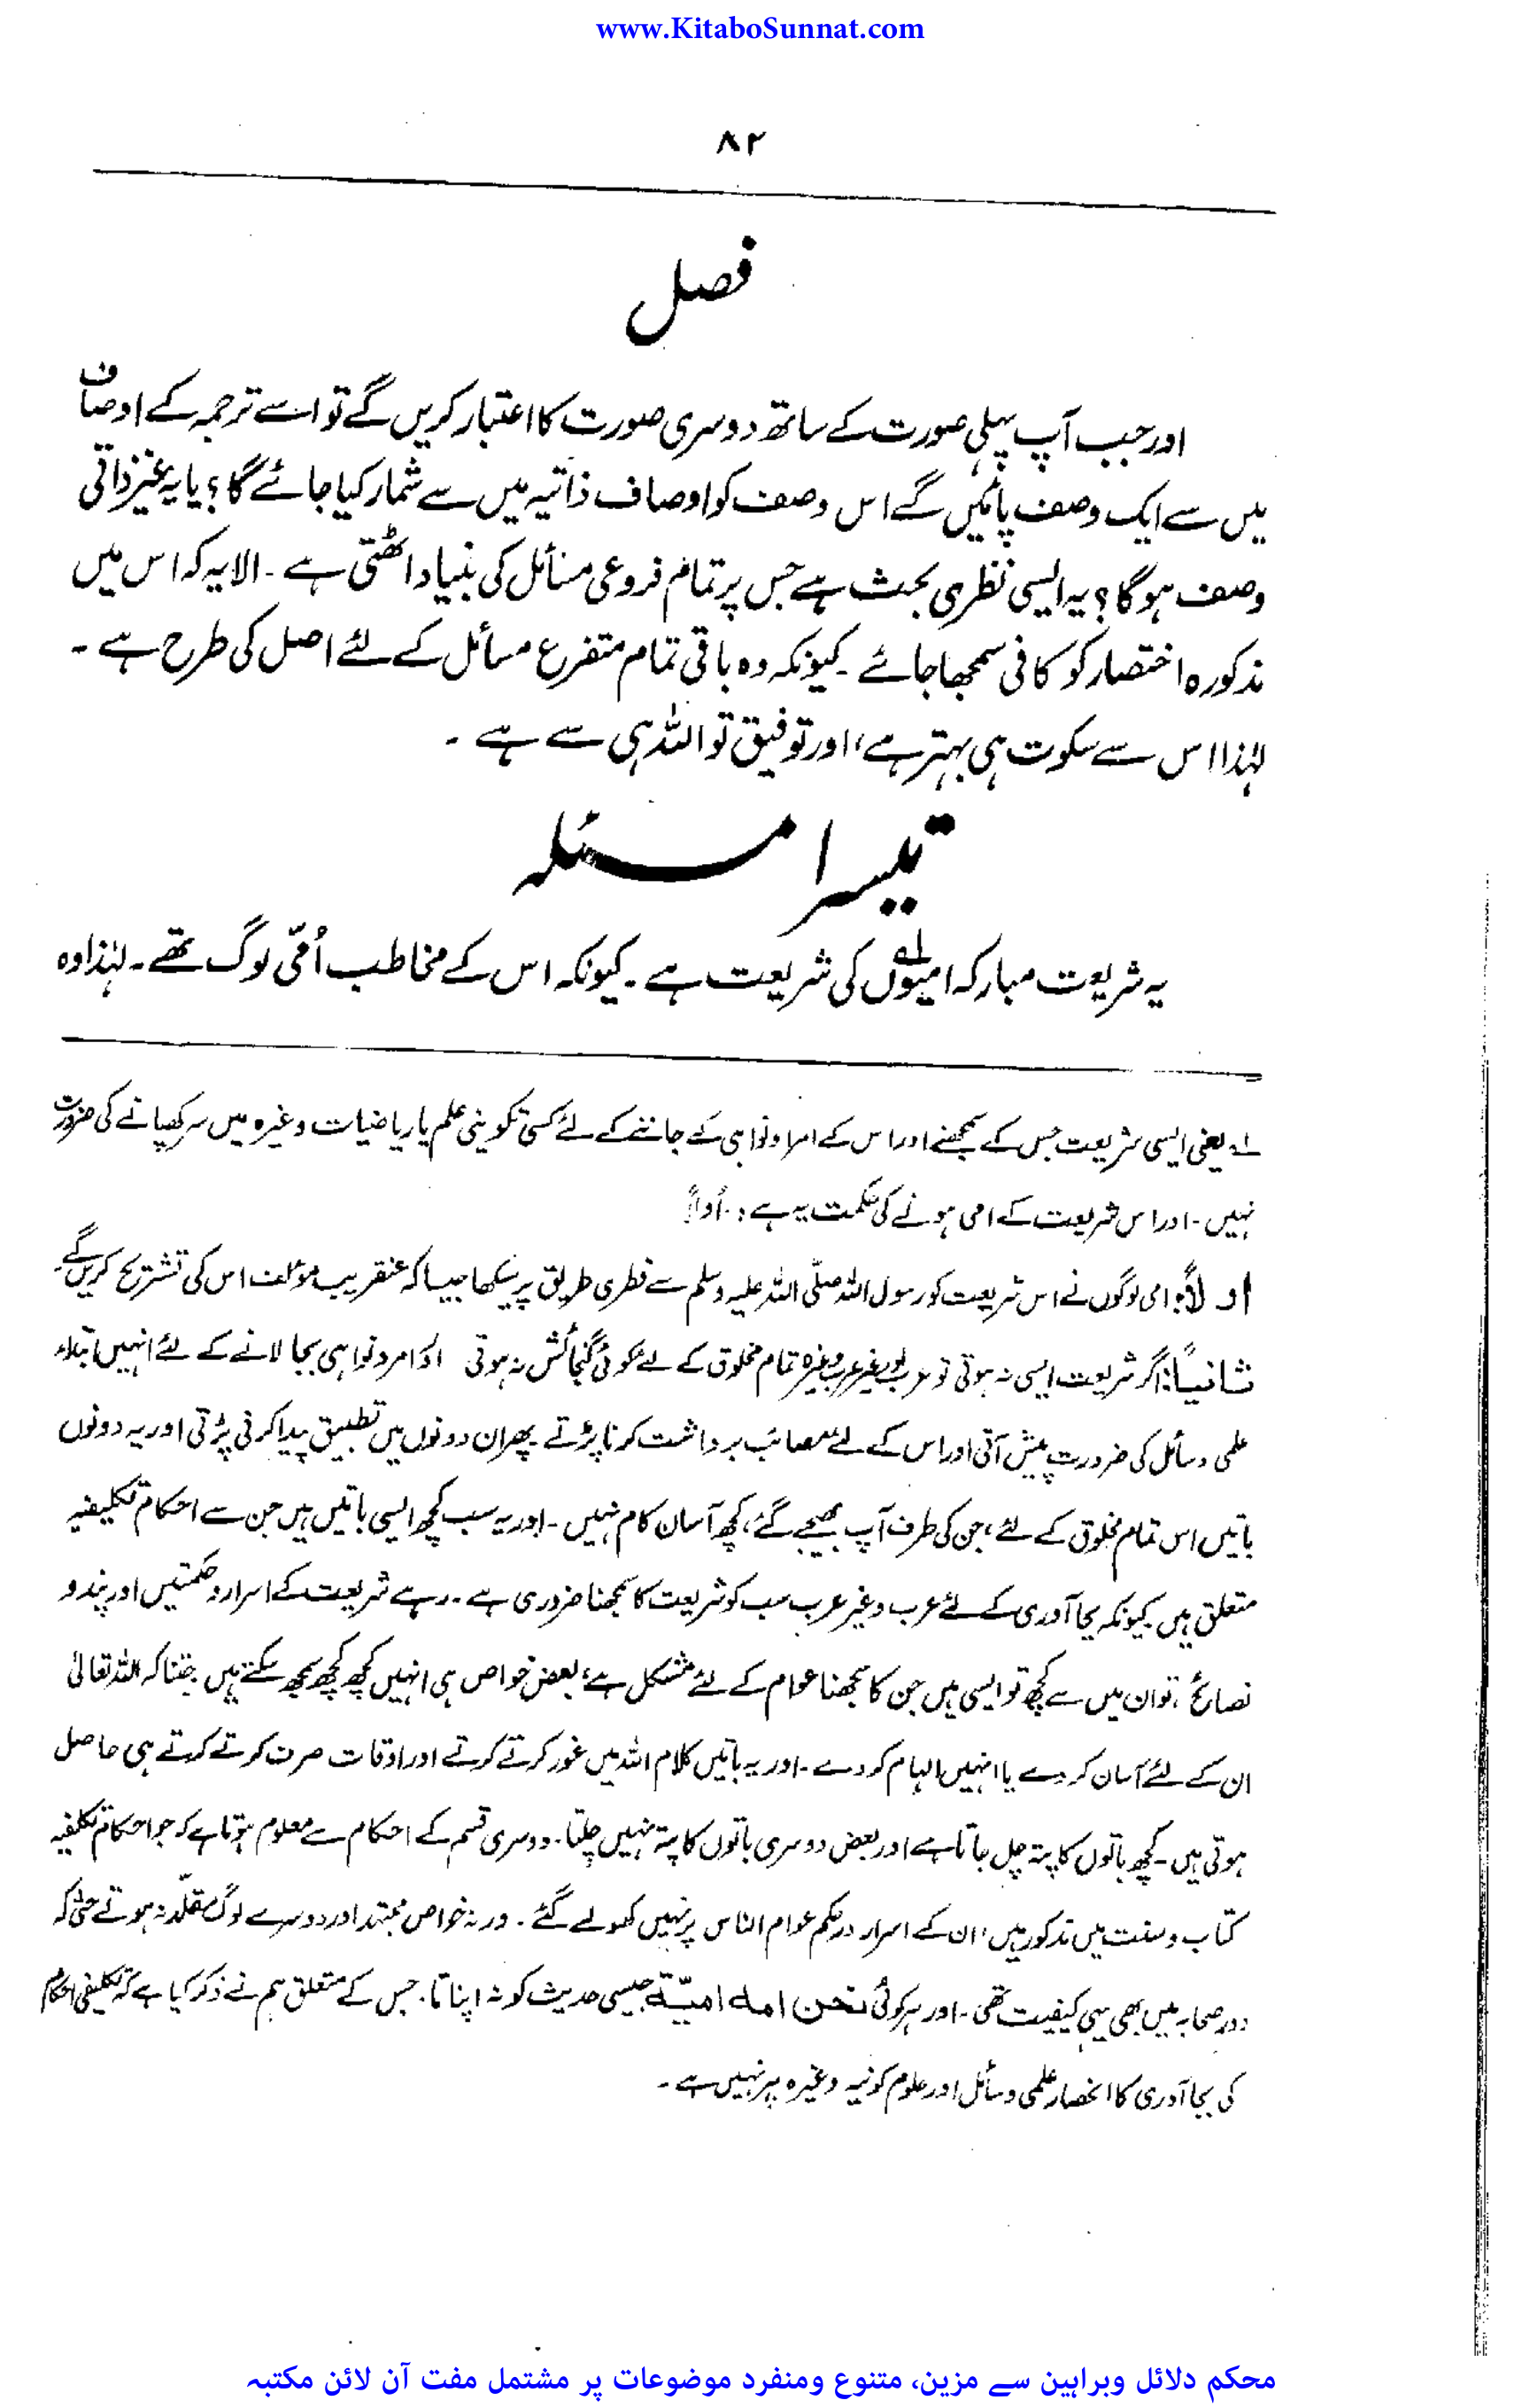 www.KitaboSunnat.com
۸۲
فصل
اور جب آپ پہلی صورت کے ساتھ دوسری صورت کا اعتبار کریں گے تو اسے ترجمہ کے اوصاف
میں سے ایک وصف پائیں گے اس وصف کو اوصاف ذاتیہ میں سے شمار کیا جائے گا؟ یا یہ غیر ذاتی
وصف ہوگا؟ یہ ایسی نظری بحث ہے جس پر تمام فروعی مسائل کی بنیاد اٹھتی ہے ۔ الا یہ کہ اس میں
مذکورہ اختصار کو کافی سمجھا جائے ۔ کیونکہ وہ باقی تمام متفرع مسائل کے لئے اصل کی طرح ہے ۔
لہٰذا اس سے سکوت ہی بہتر ہے، اور توفیق تو اللہ ہی سے ہے ۔
تیسرا مسئلہ
یہ شریعت مبارکہ امیوں لہ کی شریعت ہے ۔ کیونکہ اس کے مخاطب اُمّی لوگ تھے ۔ لہٰذا وہ
لہ یعنی ایسی شریعت جس کے سمجھنے اور اس کے اوامر ونواہی کے جاننے کے لئے کسی تکوینی علم یا ریاضیات وغیرہ میں سر کھپانے کی ضرورت
نہیں ۔ اور اس شریعت کے امی ہونے کی حکمت یہ ہے :۔ اولاً
اولاً: امی لوگوں نے اس شریعت کو رسول اللہ صلّی اللہ علیہ وسلم سے فطری طریق پر سیکھا جیسا کہ عنقریب مؤلف اس کی تشریح کریں گے۔
ثانیاً: اگر شریعت ایسی نہ ہوتی تو عرب اور غیر عرب وغیرہ تمام مخلوق کے لئے کوئی گنجائش نہ ہوتی اوامر ونواہی بجا لانے کے لئے انہیں ابتداء
علمی وسائل کی ضرورت پیش آتی اور اس کے لئے مصائب برداشت کرنا پڑتے پھر ان دونوں میں تطبیق پیدا کرنی پڑتی اور یہ دونوں
باتیں اس تمام مخلوق کے لئے، جن کی طرف آپ بھیجے گئے، کچھ آسان کام نہیں ۔ اور یہ سب کچھ ایسی باتیں ہیں جن سے احکام تکلیفیہ
متعلق ہیں کیونکہ بجا آوری کے لئے عرب وغیر عرب سب کو شریعت کا سمجھنا ضروری ہے ۔ رہے شریعت کے اسرار و حکمتیں اور پند و
نصائح ، تو ان میں سے کچھ تو ایسی ہیں جن کا سمجھنا عوام کے لئے مشکل ہے، بعض خواص ہی انہیں کچھ کچھ سمجھ سکتے ہیں جتنا کہ اللہ تعالیٰ
ان کے لئے آسان کر دے یا انہیں الہام کر دے ۔ اور یہ باتیں کلام اللہ میں غور کرتے کرتے اور اوقات صرف کرتے کرتے ہی حاصل
ہوتی ہیں ۔ کچھ باتوں کا پتہ چل جاتا ہے اور بعض دوسری باتوں کا پتہ نہیں چلتا ۔ دوسری قسم کے احکام سے معلوم ہوتا ہے کہ جو احکام تکلیفیہ
کتاب و سنت میں مذکور ہیں، ان کے اسرار و حکم عوام الناس پر نہیں کھولے گئے ۔ ورنہ خواص مجتہد اور دوسرے لوگ مقلّد نہ ہوتے حتیٰ کہ
دور صحابہ میں بھی یہی کیفیت تھی ۔ اور ہر کوئی نحن امة امیّة جیسی حدیث کو نہ اپناتا ۔ جس کے متعلق ہم نے ذکر کیا ہے کہ تکلیفی احکام
کی بجا آوری کا انحصار علمی وسائل اور علوم کونیہ وغیرہ پر نہیں ہے ۔
محکم دلائل وبراہین سے مزین، متنوع ومنفرد موضوعات پر مشتمل مفت آن لائن مکتبہ